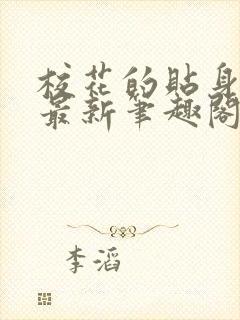 校花的贴身
最新笔趣阁
李滔